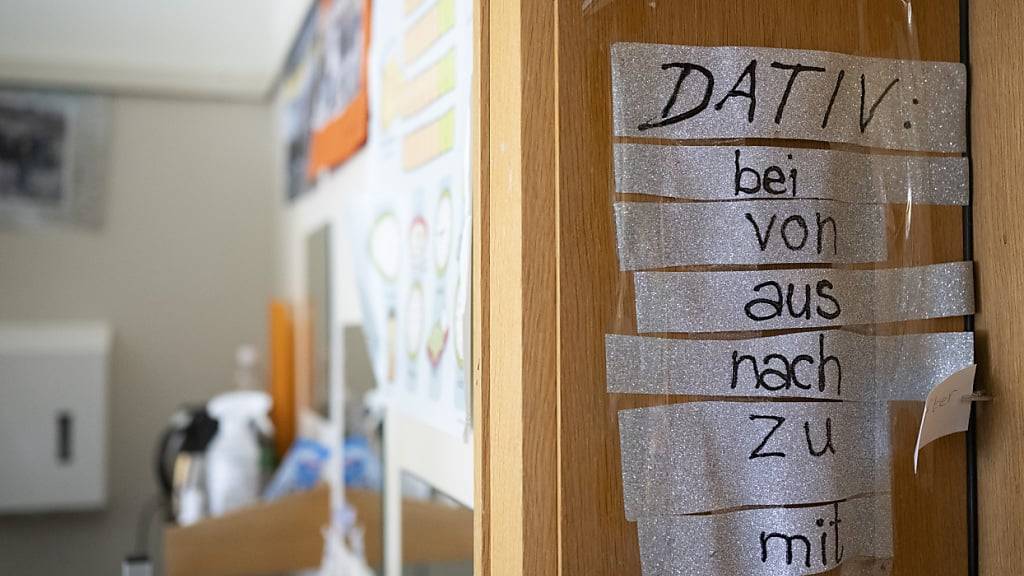 DATIV:
bei
von
aus
nach
zu
mit